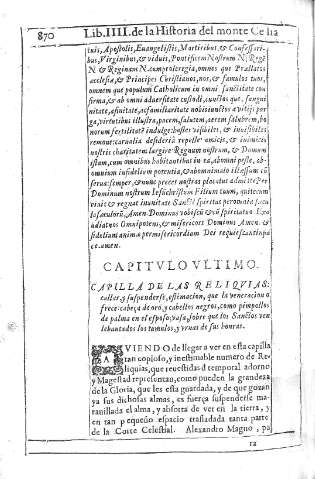 870 Lib.IIII.de la Historia del monte Celia
tuis, Apostolis, Euangelistis, Martiribus, & Confessori-
bus, Virginibus, & viduis, Pontificem Nostrum N; Regẽ
N & Reginam N. cum prole regia, omnes que Prælatos
ecclesiæ, & Principes Christianos, nos, & famulos tuos,
omnem que populum Catholicum in omni sanctitate con
firma, & ab omni aduersitate custodi, cunctos que, sangui
nitate, afinitate, ac familiaritate nobis iunctos a vitijs
ga, virtutibus illustra, pacem, salutem, aerem salubrem, bo
norum fertilitatẽ indulge: hostes visibiles, & inuisibiles
remoue: carnalia desideria repelle: amicis, & inimicis
nostris charitatem largire Regnum nostrum, & Domum
istam, cum omnibus habitantibus in ea, ab omni peste, ab
omnium infidelium potentia, & ab omni malo illæsam cõ
serua: semper, & nunc preces nostras placatus admitte Per
Dominum nostrum Iesu christum Filium tuum, qui tecum
viuit & regnat in vnitate Sancti Spiritus per omnia sæcu
la sæculorũ, Amen Dominus vobiscũ & cũ spiritu tuo Exau
diat nos Omnipotens, & misericors Dominus Amen. &
fidelium animæ per misericordiam Dei requiescant in pa
ce. amen.
CAPITVLO VLTIMO.
CAPILLA DE LAS RELIQVIAS:
callar, y suspenderse, estimacion, que la veneracion o
frece: cabeça de oro, y cabellos negros, como pimpollos
de palma en el esposo: vasa, sobre que los Sanctos van
leuantados los tumulos, y vrnas de sus honras.
AVIENDO de llegar a ver en esta capilla
tan copioso, y inestimable numero de Re-
liquias, que reuestidas d temporal adorno
y Magestad representan, como pueden la grandeza
de la Gloria, que les esta guardada, y de que gozan
ya sus dichosas almas, es fuerça suspenderse ma-
rauillada el alma, y absorta de ver en la tierra, y
en tan pequeño espacio trasladada tanta parte
de la Corte Celestial. Alexandro Magno, pa
ra